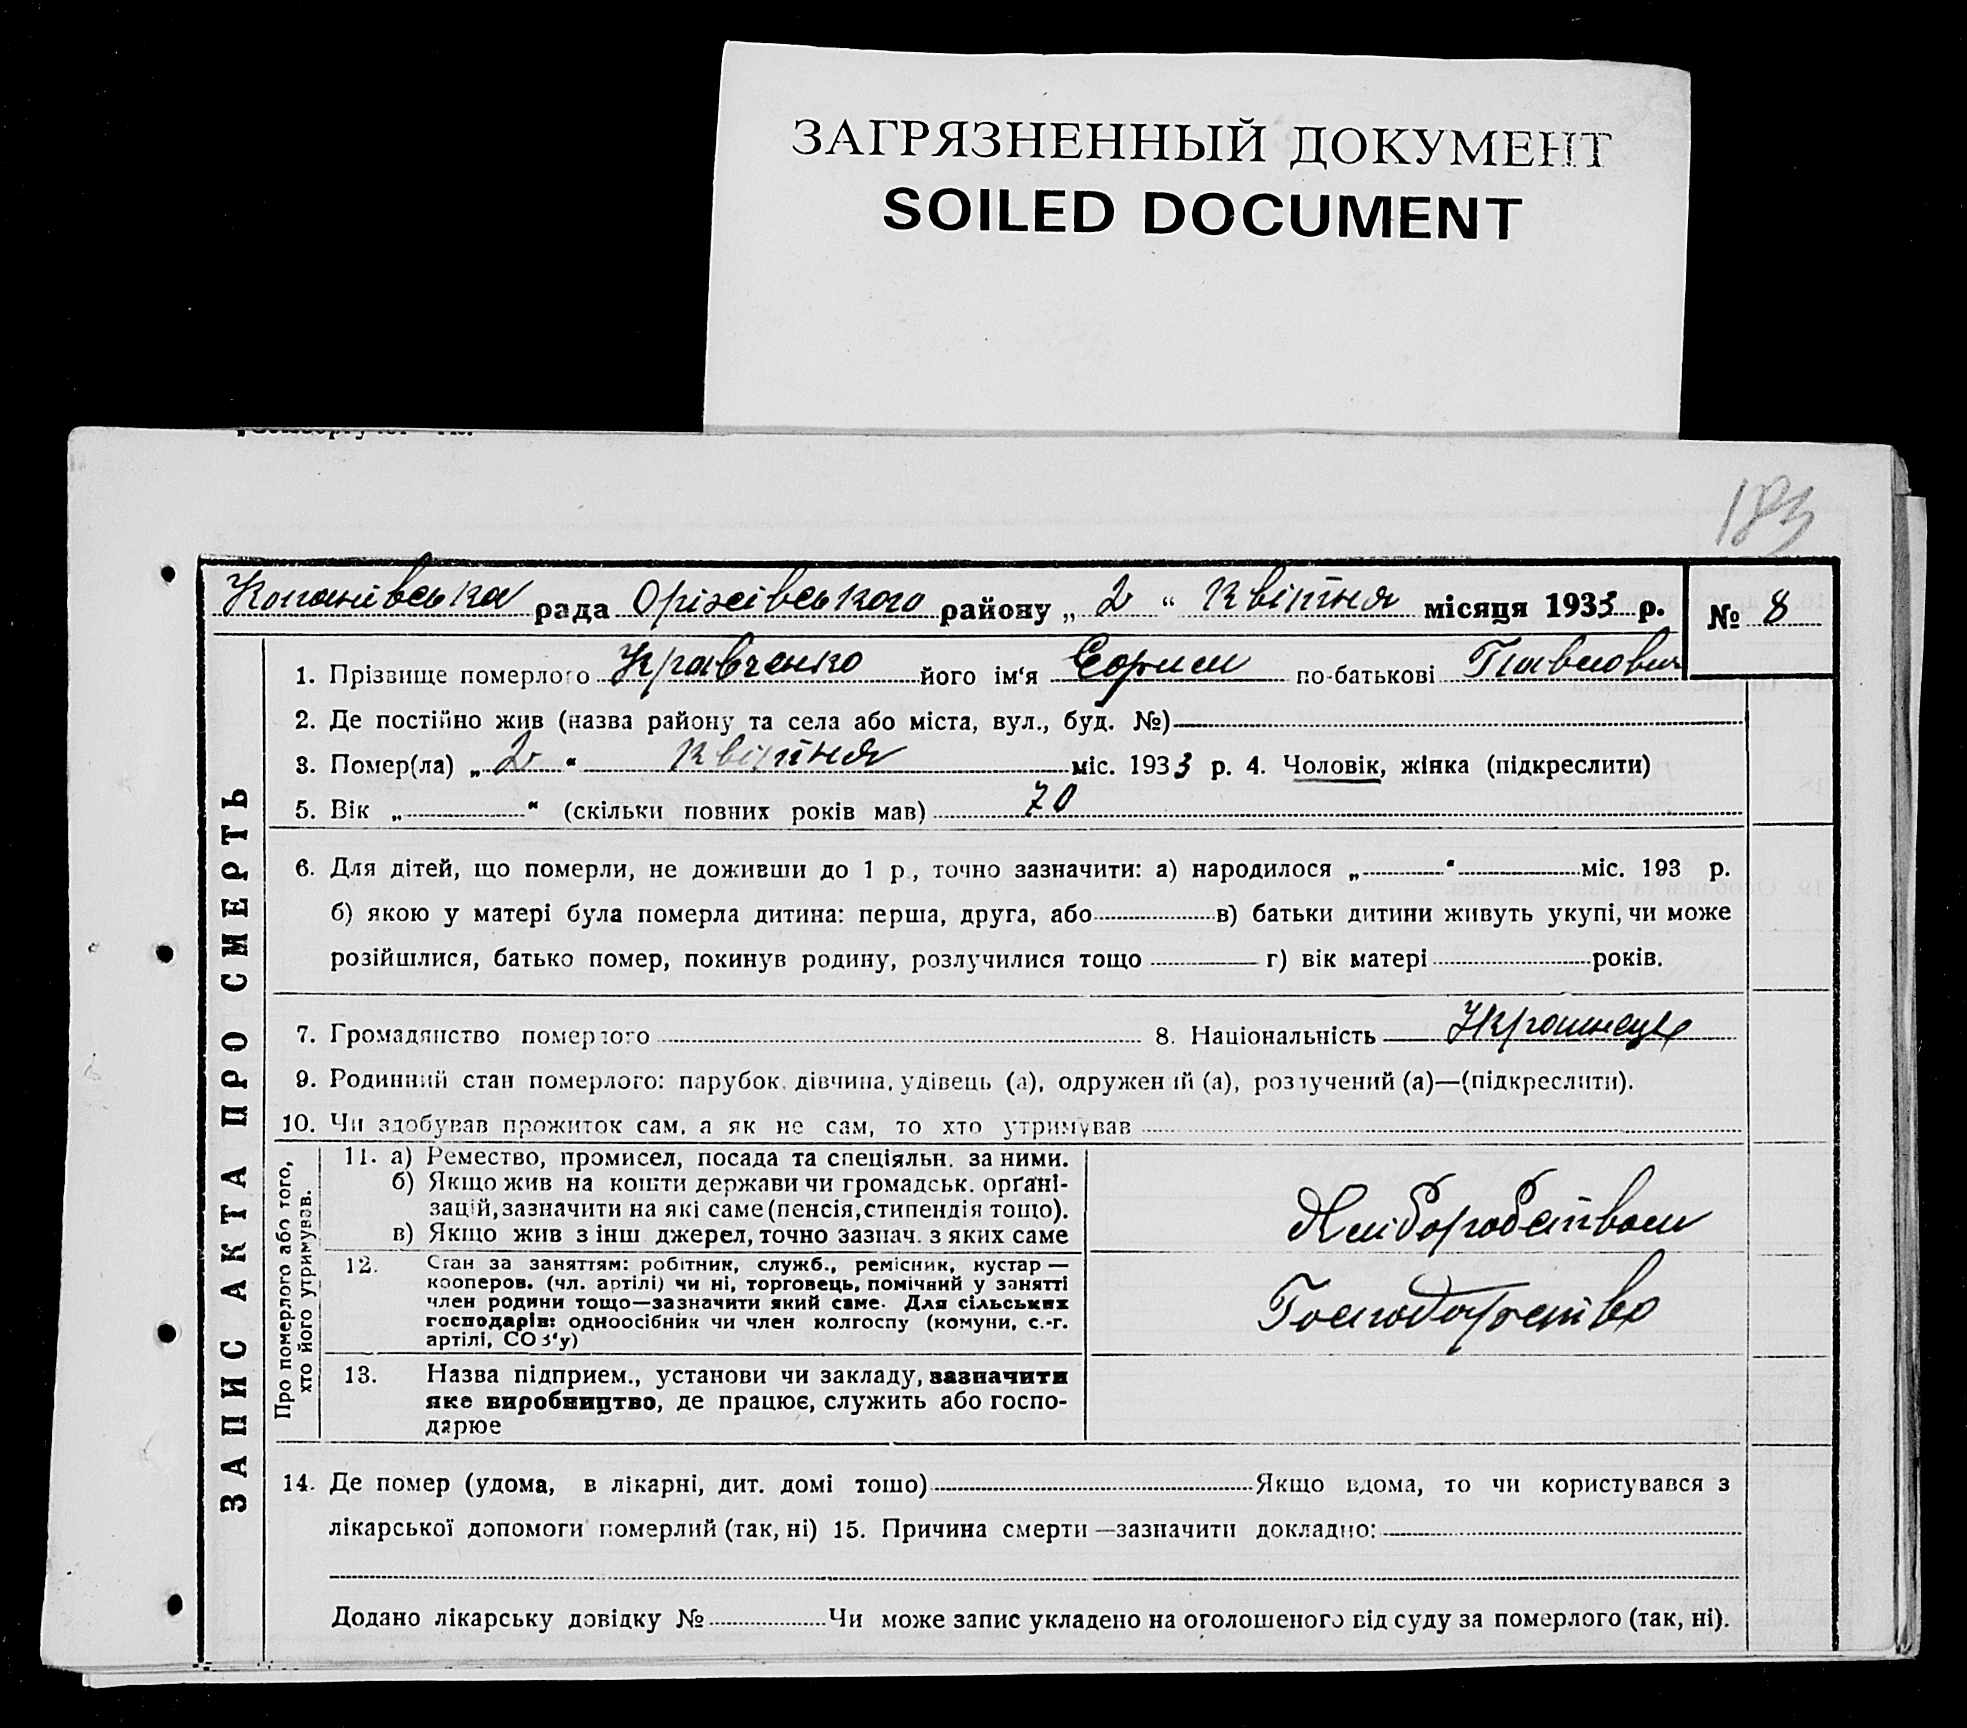 ЗАГРЯЗНЕННЫЙ ДОКУМЕНТ
SOILED DOCUMENT
183
Копанівська рада Оріхівського району „ 2 “ Квітня місяця 1933 р. № 8
ЗАПИС АКТА ПРО СМЕРТЬ
1. Прізвище померлого Кравченко його ім'я Єфрим по-батькові Павлович
2. Де постійно жив (назва району та села або міста, вул., буд. №)
3. Помер(ла) „ 2 “ Квітня міс. 1933 р. 4. Чоловік, жінка (підкреслити)
5. Вік „ “ (скільки повних років мав) 70
6. Для дітей, що померли, не доживши до 1 р., точно зазначити: а) народилося „ “ міс. 193 р.
б) якою у матері була померла дитина: перша, друга, або в) батьки дитини живуть укупі, чи може
розійшлися, батько помер, покинув родину, розлучилися тощо г) вік матері років.
7. Громадянство померлого 8. Національність Українець
9. Родинний стан померлого: парубок, дівчина, удівець (а), одружений (а), розлучений (а)—(підкреслити).
10. Чи здобував прожиток сам, а як не сам, то хто утримував
Про померлого або того,
хто його утримував.
11. а) Ремество, промисел, посада та спеціяльн. за ними.
б) Якщо жив на кошти держави чи громадськ. орґані-
зацій, зазначити на які саме (пенсія, стипендія тощо).
в) Якщо жив з інш джерел, точно зазнач. з яких саме
Хліборобством
12. Стан за заняттям: робітник, служб., ремісник, кустар —
кооперов. (чл. артілі) чи ні, торговець, помічний у занятті
член родини тощо—зазначити який саме. Для сільських
господарів: одноосібник чи член колгоспу (комуни, с.-г.
артілі, СОЗ'у)
Господарство
13. Назва підприєм., установи чи закладу, зазначити
яке виробництво, де працює, служить або госпо-
дарює
14. Де помер (удома, в лікарні, дит. домі тощо) Якщо вдома, то чи користувався з
лікарської допомоги померлий (так, ні) 15. Причина смерти —зазначити докладно:
Додано лікарську довідку № Чи може запис укладено на оголошеного від суду за померлого (так, ні).